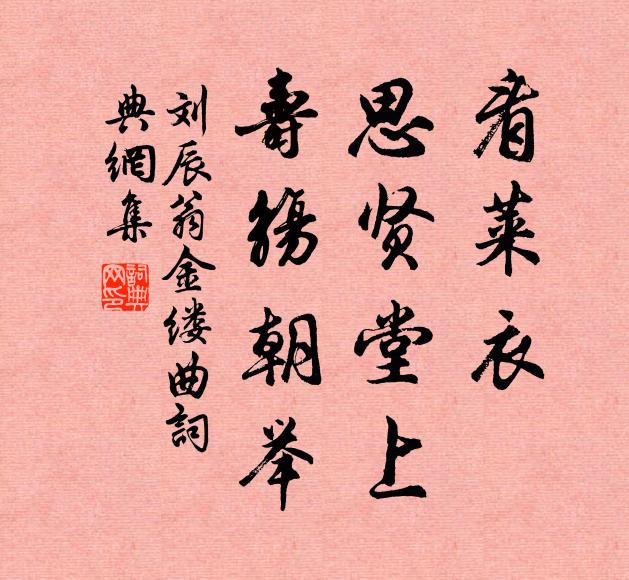 看莱衣
思贤堂上
壽觴朝举
刘辰翁金缕曲詞
典網集
詞典网印